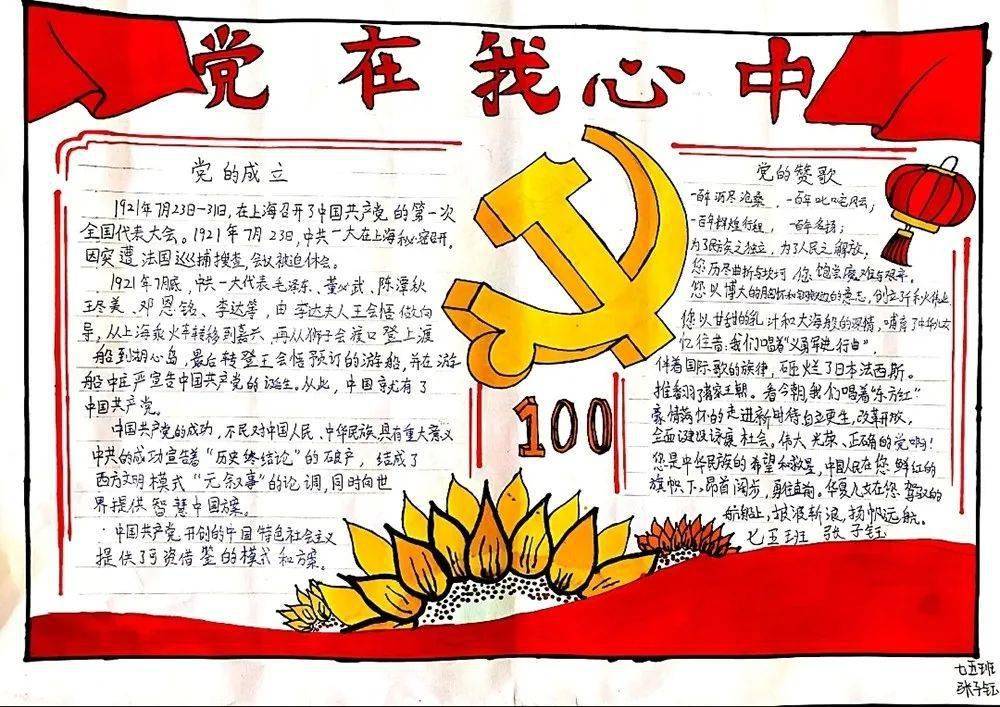 党在我心中
党的成立
1921年7月23日-31日，在上海召开了中国共产党的第一次
全国代表大会。1921年7月23日，中共一大在上海秘密召开。
因突遭法国巡捕搜查，会议被迫休会。
1921年7月底，中共一大代表毛泽东、董必武、陈潭秋
王尽美、邓恩铭、李达等，由李达夫人王会悟做向
导，从上海乘火车转移到嘉兴，再从狮子会渡口登上渡
船到湖心岛，最后转登王会悟预订的游船，并在游
船中庄严宣告中国共产党的诞生。从此，中国就有了
中国共产党。
中国共产党的成功，不民对中国人民、中华民族具有重大意义
中共的成功宣告着“历史终结论”的破产，结成了
西方文明模式“元叙事”的论调，同时向世
界提供智慧中国方案。
中国共产党开创的中国特色社会主义
提供了可资借鉴的模式和方案。
100
党的赞歌
一百年沥尽沧桑，一百年叱咤风云；
一百年辉煌行程，一百年名扬；
为了民族之独立，为了人民之解放，
您历尽曲折与坎坷您饱尝磨难与艰辛。
您以博大的胸怀和钢铁边的意志，创立了伟业
您以甘甜的乳汁和大海般的深情，哺育了中华儿女
忆往昔，我们唱着“义勇军进行曲”，
伴着国际歌的旋律，砸烂了日本法西斯。
推翻了蒋家王朝。看今朝，我们唱着“东方红”
豪情满怀的走进新时待自立更生，改革开放，
全面建设社会。伟大、光荣、正确的党啊！
您是中华民族的希望和救星，中国人民在您鲜红的
旗帜下，昂首阔步，勇往直前。华夏儿女在您驾驶的
航船上，披波斩浪，扬帆远航。
七五班 张子钰
七五班
张子钰